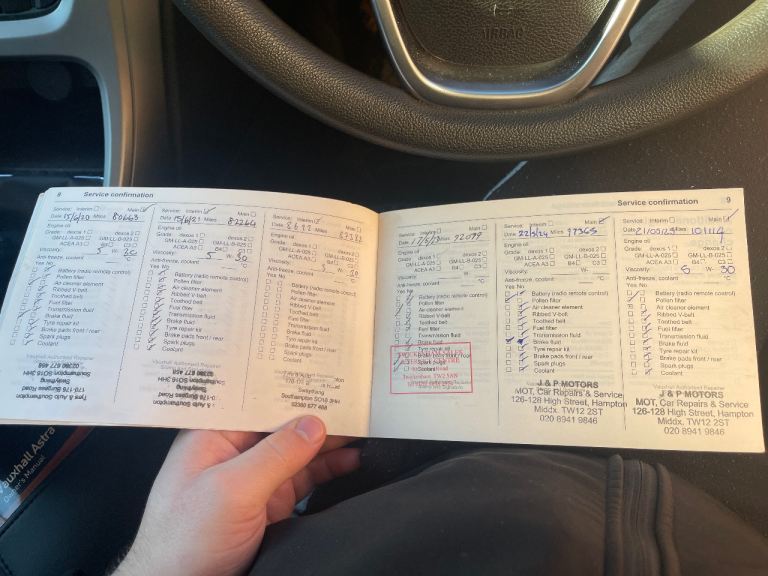 AIRBAG
8 Service confirmation
Service: Interim Main
Date 15/6/20 Miles 80663
Engine oil
Grade: dexos 1 dexos 2
GM-LL-A-025 GM-LL-B-025
ACEA A3 C3
Viscosity: 5 W- 30
Anti-freeze, coolant °C
Yes No
Battery (radio remote control)
Pollen filter
Air cleaner element
Ribbed V-belt
Toothed belt
Fuel filter
Transmission fluid
Brake fluid
Tyre repair kit
Brake pads front / rear
Spark plugs
Coolant
Vauxhall Authorised Repairer
Tyre & Auto Southampton
170-176 Burgess Road
Swaythling
Southampton SO16 3HH
02380 677 468
Service: Interim Main
Date 15/6/21 Miles 82264
Engine oil
Grade: dexos 1 dexos 2
GM-LL-A-025 GM-LL-B-025
ACEA A3 C3
Viscosity: 5 W- 30
Anti-freeze, coolant °C
Yes No
Battery (radio remote control)
Pollen filter
Air cleaner element
Ribbed V-belt
Toothed belt
Fuel filter
Transmission fluid
Brake fluid
Tyre repair kit
Brake pads front / rear
Spark plugs
Coolant
Vauxhall Authorised Repairer
& Auto Southampton
Burgess Road
Swaythling
Southampton SO16 3HH
02380 677 468
Service: Interim Main
Date Miles
Engine oil
Grade: dexos 1 dexos 2
GM-LL-A-025 GM-LL-B-025
ACEA A3 C3
Viscosity: 5 W- 30
Anti-freeze, coolant °C
Yes No
Battery (radio remote control)
Pollen filter
Air cleaner element
Ribbed V-belt
Toothed belt
Fuel filter
Transmission fluid
Brake fluid
Tyre repair kit
Brake pads front / rear
Spark plugs
Coolant
Swaythling
Southampton SO16 3HH
02380 677 468
Service confirmation 9
Service: Interim Main
Date Miles 92099
Engine oil
Grade: dexos 1 dexos 2
GM-LL-A-025 GM-LL-B-025
ACEA A3 B4 C3
Viscosity: W-
Anti-freeze, coolant °C
Yes No
Battery (radio remote control)
Pollen filter
Air cleaner element
Ribbed V-belt
Toothed belt
Fuel filter
Transmission fluid
Brake fluid
Tyre repair kit
Brake pads front / rear
Spark plugs
Coolant
Road
Twickenham, TW2 5AN
Service: Interim Main
Date 22/5/24 Miles 97365
Engine oil
Grade: dexos 1 dexos 2
GM-LL-A-025 GM-LL-B-025
ACEA A3 B4 C3
Viscosity: W-
Anti-freeze, coolant °C
Yes No
Battery (radio remote control)
Pollen filter
Air cleaner element
Ribbed V-belt
Toothed belt
Fuel filter
Transmission fluid
Brake fluid
Tyre repair kit
Brake pads front / rear
Spark plugs
Coolant
J & P MOTORS
MOT, Car Repairs & Service
126-128 High Street, Hampton
Middx. TW12 2ST
020 8941 9846
Service: Interim Main
Date 21/05/25 Miles 101114
Engine oil
Grade: dexos 1 dexos 2
GM-LL-A-025 GM-LL-B-025
ACEA A3 B4 C3
Viscosity: 5 W- 30
Anti-freeze, coolant °C
Yes No
Battery (radio remote control)
Pollen filter
Air cleaner element
Ribbed V-belt
Toothed belt
Fuel filter
Transmission fluid
Brake fluid
Tyre repair kit
Brake pads front / rear
Spark plugs
Coolant
Vauxhall Authorised Repairer
J & P MOTORS
MOT, Car Repairs & Service
126-128 High Street, Hampton
Middx. TW12 2ST
020 8941 9846
Vauxhall Astra
Owner's Manual